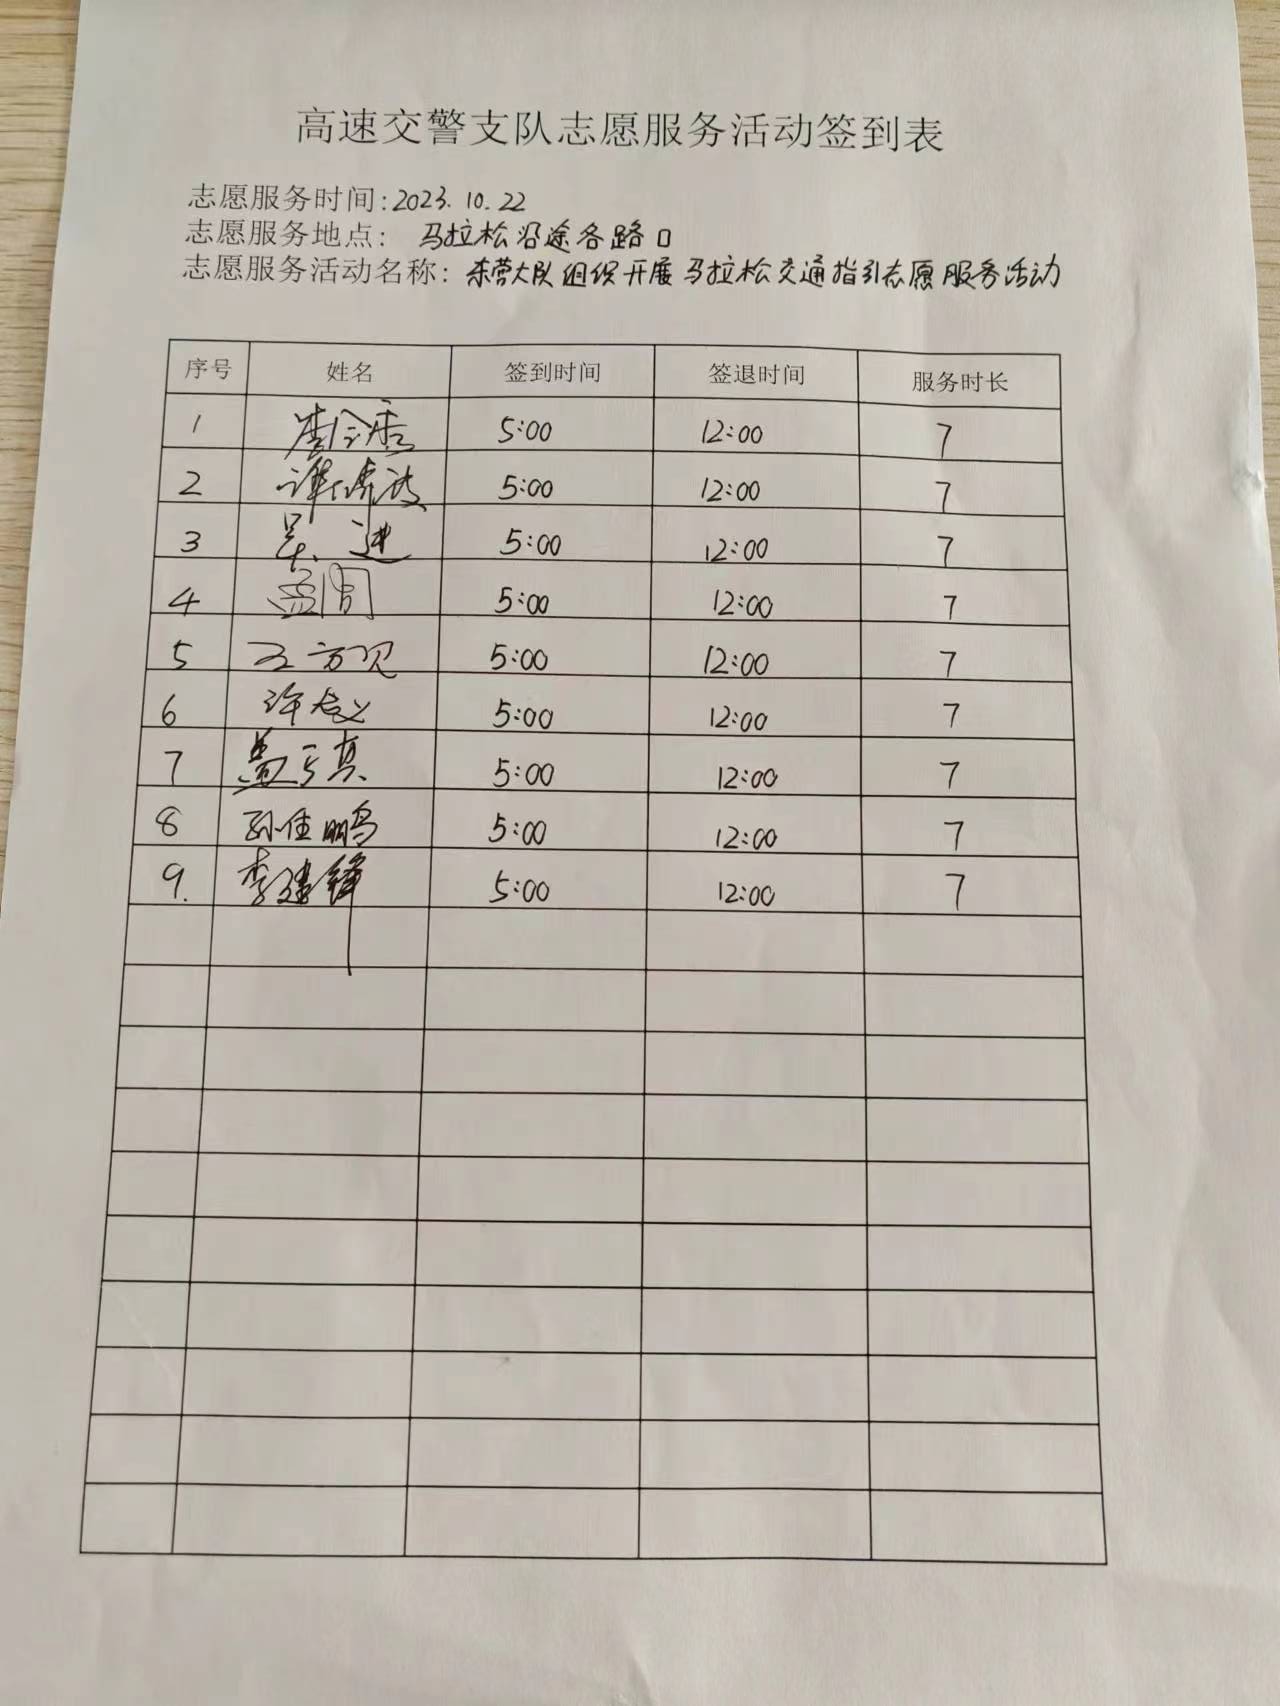 高速交警支队志愿服务活动签到表
志愿服务时间:2023.10.22
志愿服务地点: 马拉松沿途各路口
志愿服务活动名称: 东营大队组织开展马拉松交通指引志愿服务活动
序号 姓名 签到时间 签退时间 服务时长
1 5:00 12:00 7
2 5:00 12:00 7
3 吴进 5:00 12:00 7
4 孟周 5:00 12:00 7
5 5:00 12:00 7
6 5:00 12:00 7
7 5:00 12:00 7
8 孙佳鹏 5:00 12:00 7
9. 李建锋 5:00 12:00 7